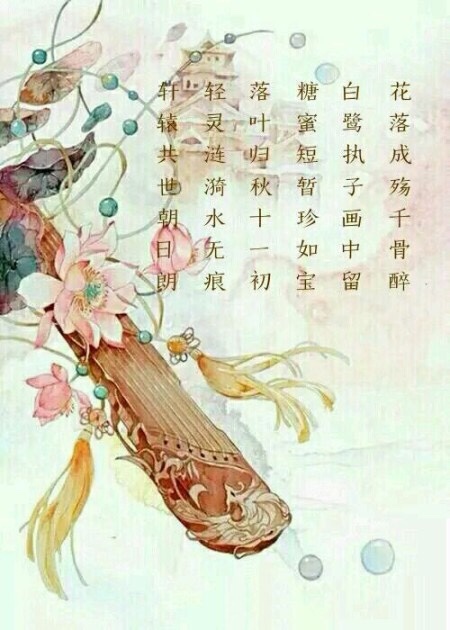 花落成殇千骨醉
白鹭执子画中留
糖蜜短暂珍如宝
落叶归秋十一初
轻灵涟漪水无痕
轩辕共世朝日朗